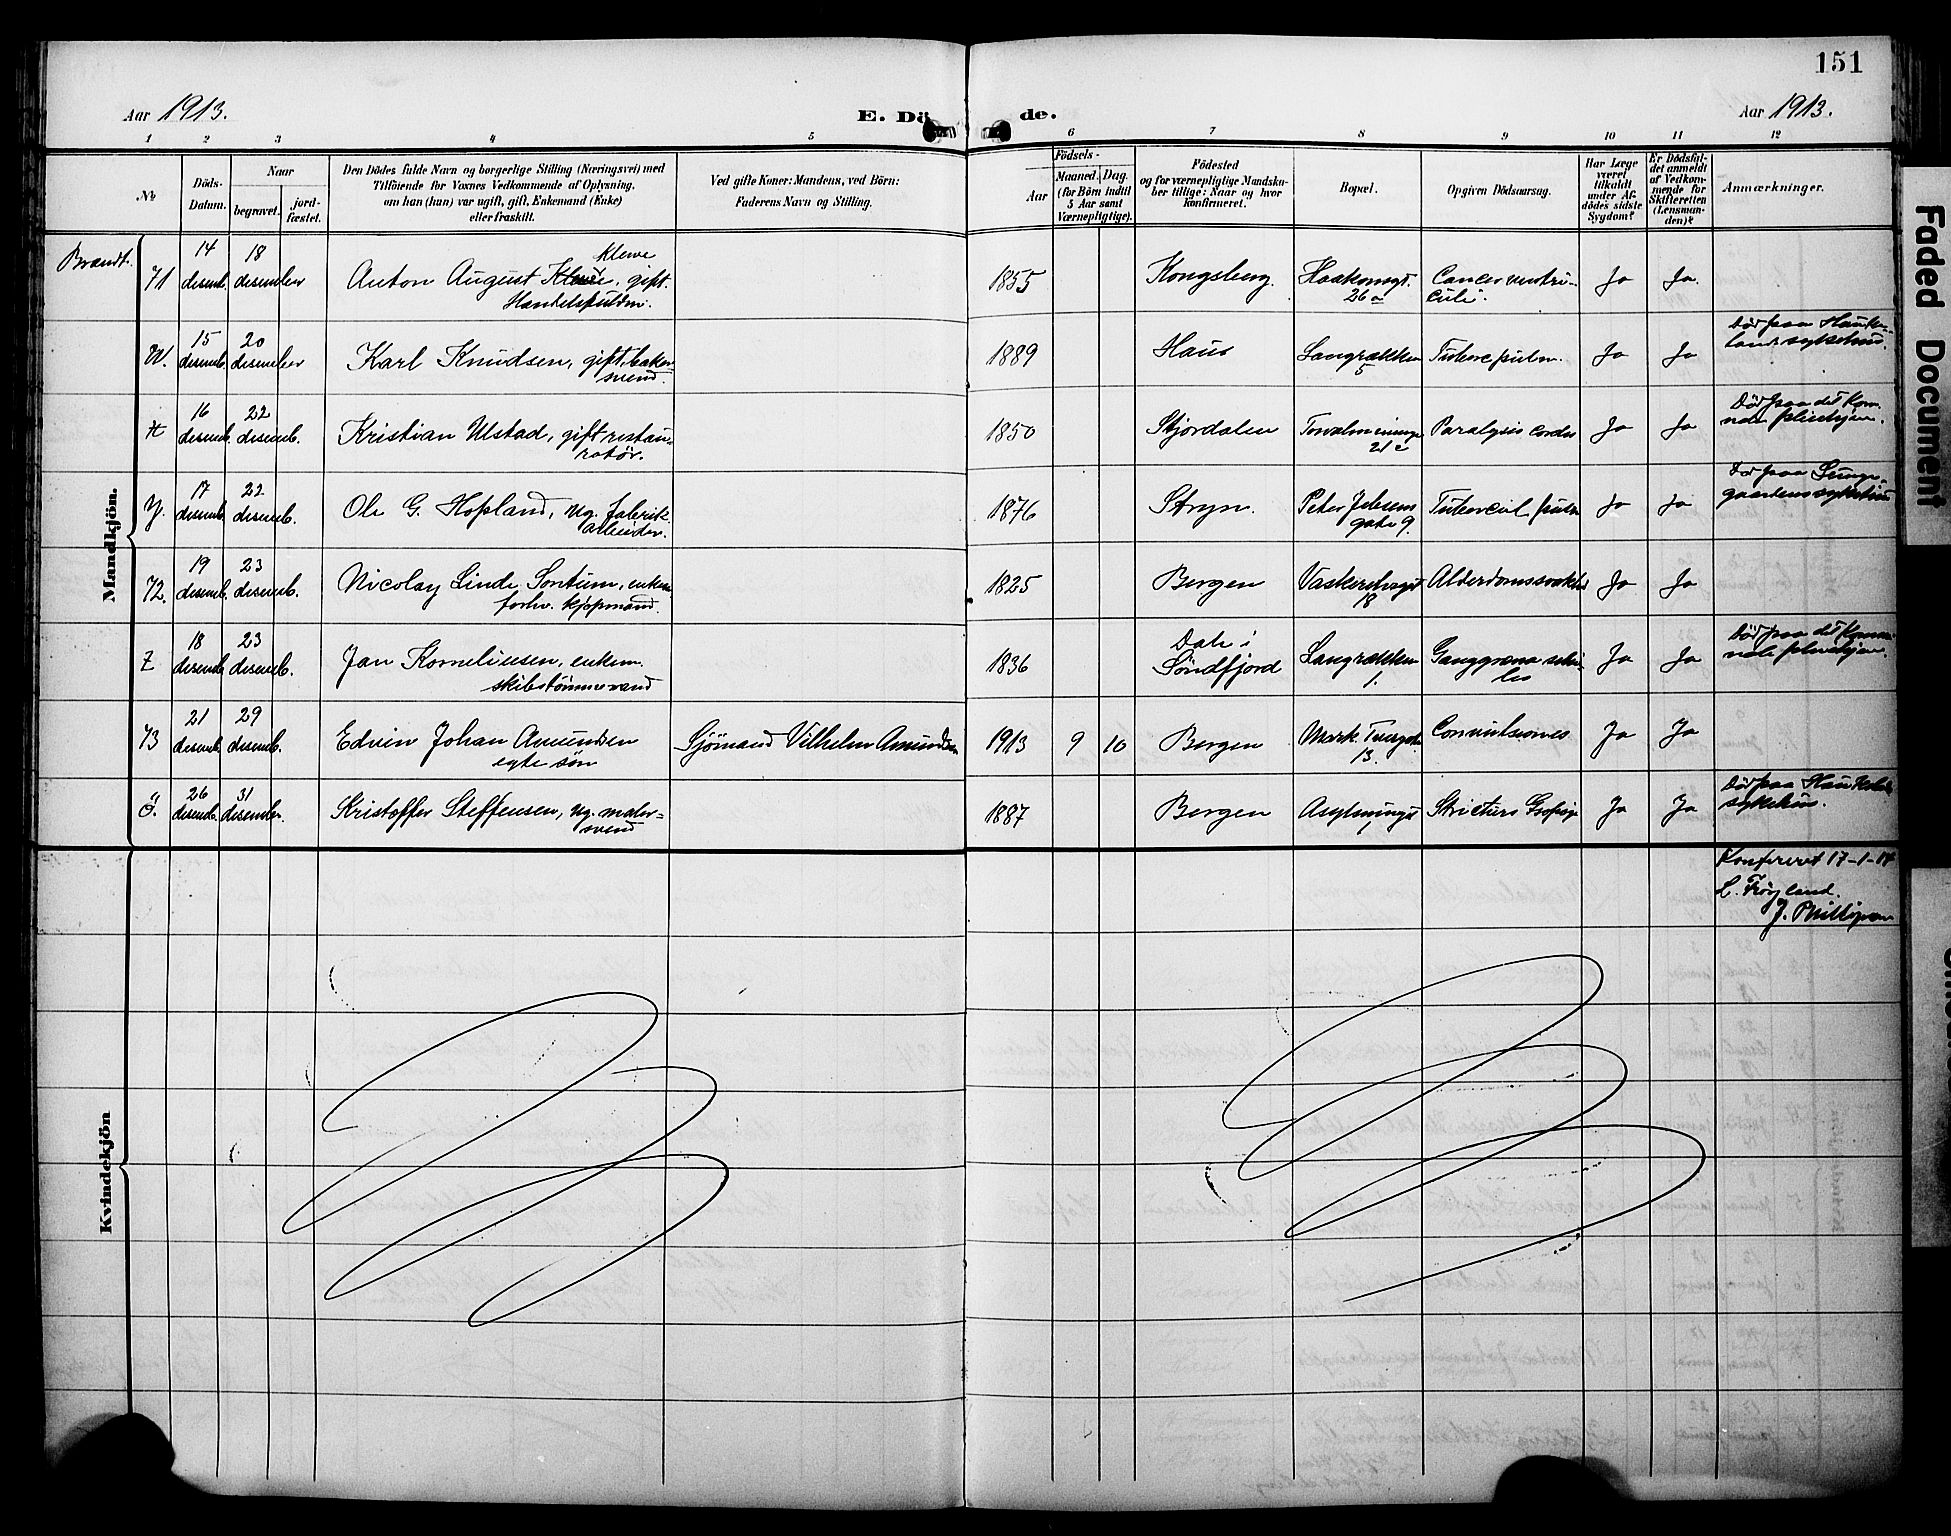 151
Aar 1913.
E. Dö
de.
Aar 1913.
1 2 3 4 5 6 7 8 9 10 11 12
№
Döds-
Datum.
Naar
begravet.
jord-
fæstet.
Den Dödes fulde Navn og borgerlige Stilling (Næringsvei) med
Tilföiende for Voxnes Vedkommende af Oplysning,
om han (hun) var ugift, gift, Enkemand (Enke)
eller fraskilt.
Ved gifte Koner: Mandens, ved Börn:
Faderens Navn og Stilling.
Födsels-
Aar
Maaned. Dag.
(for Börn indtil
5 Aar samt
Værnepligtige).
Födested
og for værnepligtige Mandska-
ber tillige: Naar og hvor
konfirmeret.
Bopæl.
Opgiven Dödsaarsag.
Har Læge
været
tilkaldt
under Af-
dödes sidste
Sygdom?
Er Dödsfal-
det anmeldt
af Vedkom-
mende for
Skifteretten
(Lensman-
den)?
Anmærkninger.
Mandkjön.
Brandt.
71
14
desemb.
18
desember
Klewe
Anton August, gift.
1855
Kongsberg
Haakonsgt.
26a
Cancer ventri-
culi.
Ja
Ja.
W.
15
desemb.
20
desember
Karl Knudsen, gift, baker-
svend.
1889
Haus
Langrækken
5
Tuberc pulm.
Ja
Ja
Död paa Hauke-
land sykehus.
X
16
desemb.
22
desemb.
Kristian Ulstad, gift restau-
ratör.
1850
Stjordalen
21c
Paralysis cordis
Ja
Ja
Död paa det Kom.
nale pleiehjem.
Y.
17
desemb.
22
desemb.
Ole G. Hopland, ug. fabrik-
arbeider.
1876
Stryn.
Peter Jebsens
gate 9.
Tubercul pulm
Ja
Ja
Död paa Lungegaardens sykehus
72.
19
desemb.
23
desemb.
Nicolay Linde Sontum, enkem
forhv. kjøpmand.
1825
Bergen
18
Alderdomssvakhed
Ja
Ja
Z
18
desemb.
23
desemb.
Jan Korneliusen, enkem.
skibstömmermand
1836
Dale i
Söndfjord
Langrækken
1.
Ganggræna seni-
les
Ja
Ja
Död paa det Kommu-
nale pleiehjem.
73
21
desemb.
29
desemb.
Edvin Johan Amundsen
egte sön
Sjömand Vilhelm Amundsen
1913 9 10
Bergen
13.
Convulsiones
Ja
Ja
Ö.
26
desemb.
31
desember.
Kristoffer Steffensen, ug. maler-
svend
1887
Bergen
1
Ja
Ja
Död paa Haukeland
sykehus.
Kvindekjön
Konfereret 17-1-14
L. Fröyland.
J. Phillipsen
Faded Document